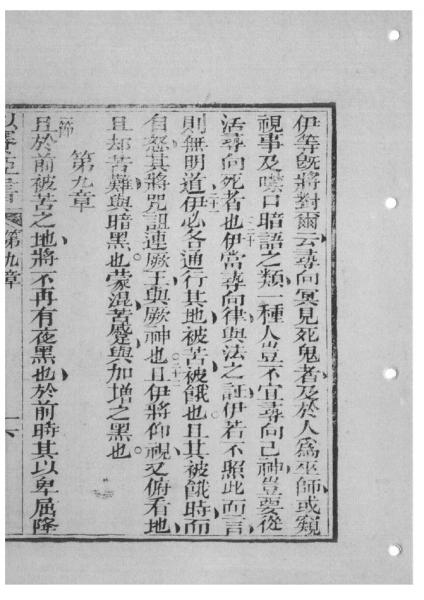 伊等旣將對爾云尋向冥見死鬼者及於人爲巫師或窺
視事及噤口暗語之類一種人豈不宜尋向己神豈要從
活尋向死者也伊當尋向律與法之証伊若不照此而言
則無明道伊必各通行其地被苦被餓也且其被餓時而
自怒其將咒詛連厥王與厥神也且伊將仰視又俯看地
且却苦難與暗黑也蒙混苦蹙與加增之黑也
第九章
一節 且於前被苦之地將不再有夜黑也於前時其以卑屈降
以賽亞書 第九章